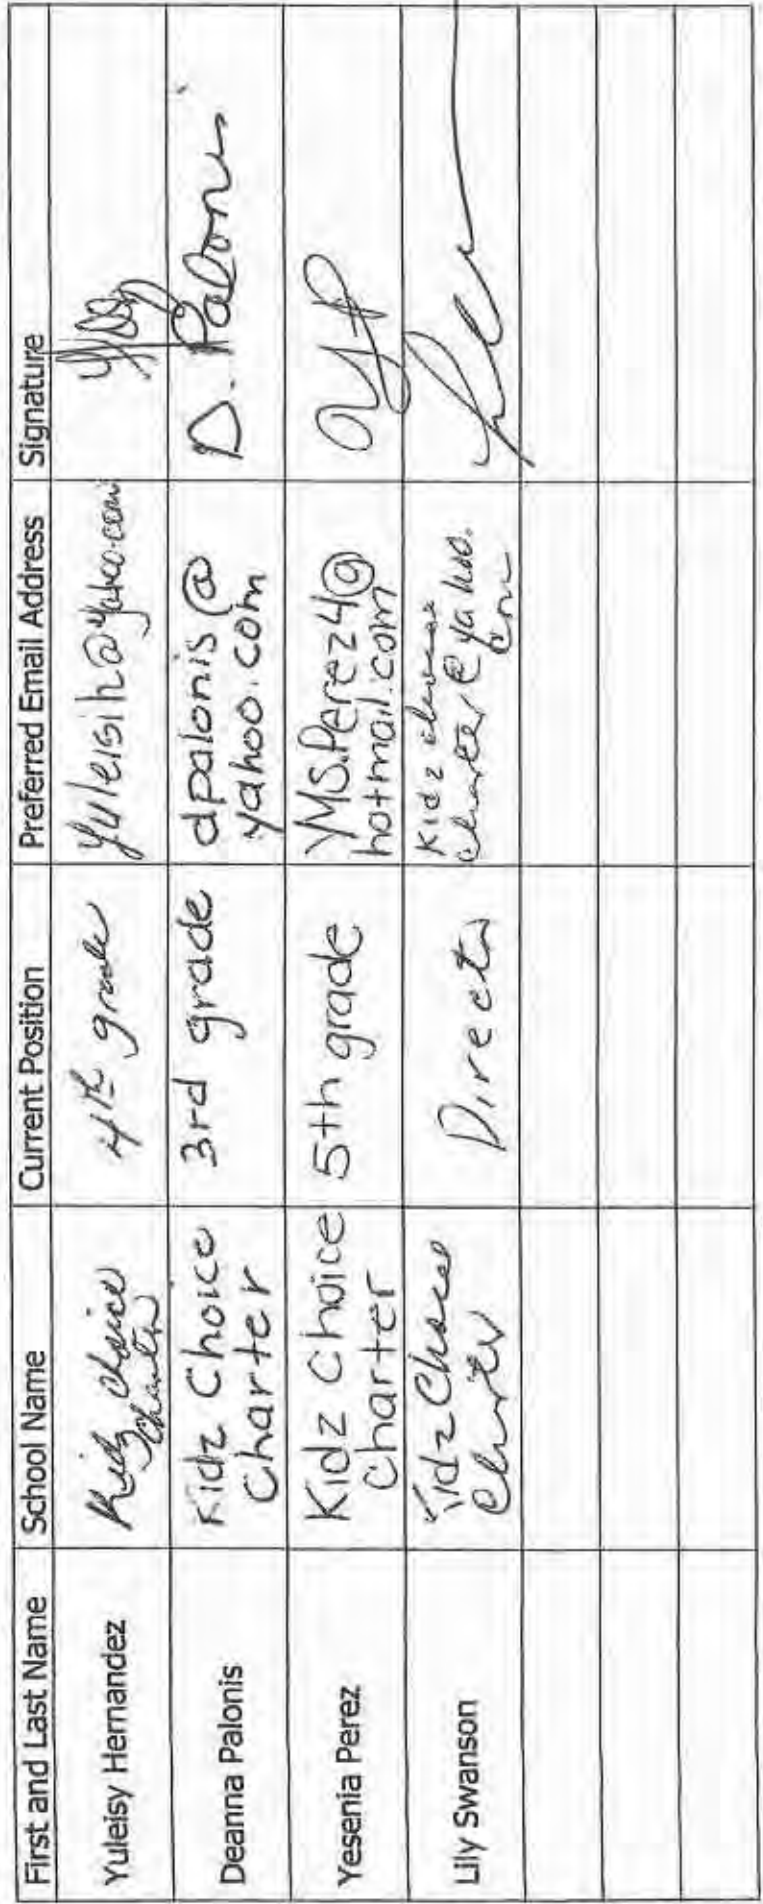 First and Last Name School Name Current Position Preferred Email Address Signature
Yuleisy Hernandez Kidz Choice Charter 4th grade yuleisih@yahoo.com
Deanna Palonis Kidz Choice Charter 3rd grade dpalonis@yahoo.com D. Palonis
Yesenia Perez Kidz Choice Charter 5th grade YMS.Perez4@hotmail.com YP
Lily Swanson Kidz Choice Charter Director